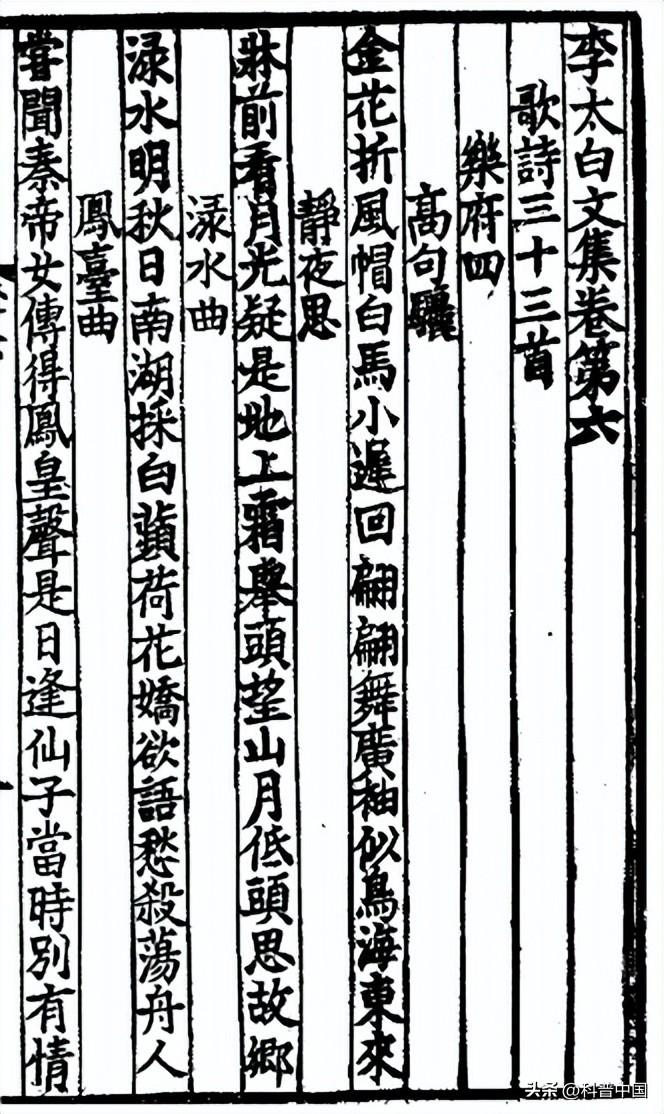 李太白文集卷第六
歌詩三十三首
樂府四
高句驪
金花折風帽白馬小遲回翩翩舞廣袖似鳥海東來
靜夜思
牀前看月光疑是地上霜舉頭望山月低頭思故鄉
淥水曲
淥水明秋日南湖採白蘋荷花嬌欲語愁殺蕩舟人
鳳臺曲
嘗聞秦帝女傳得鳳皇聲是日逢仙子當時別有情
头条 @科普中国